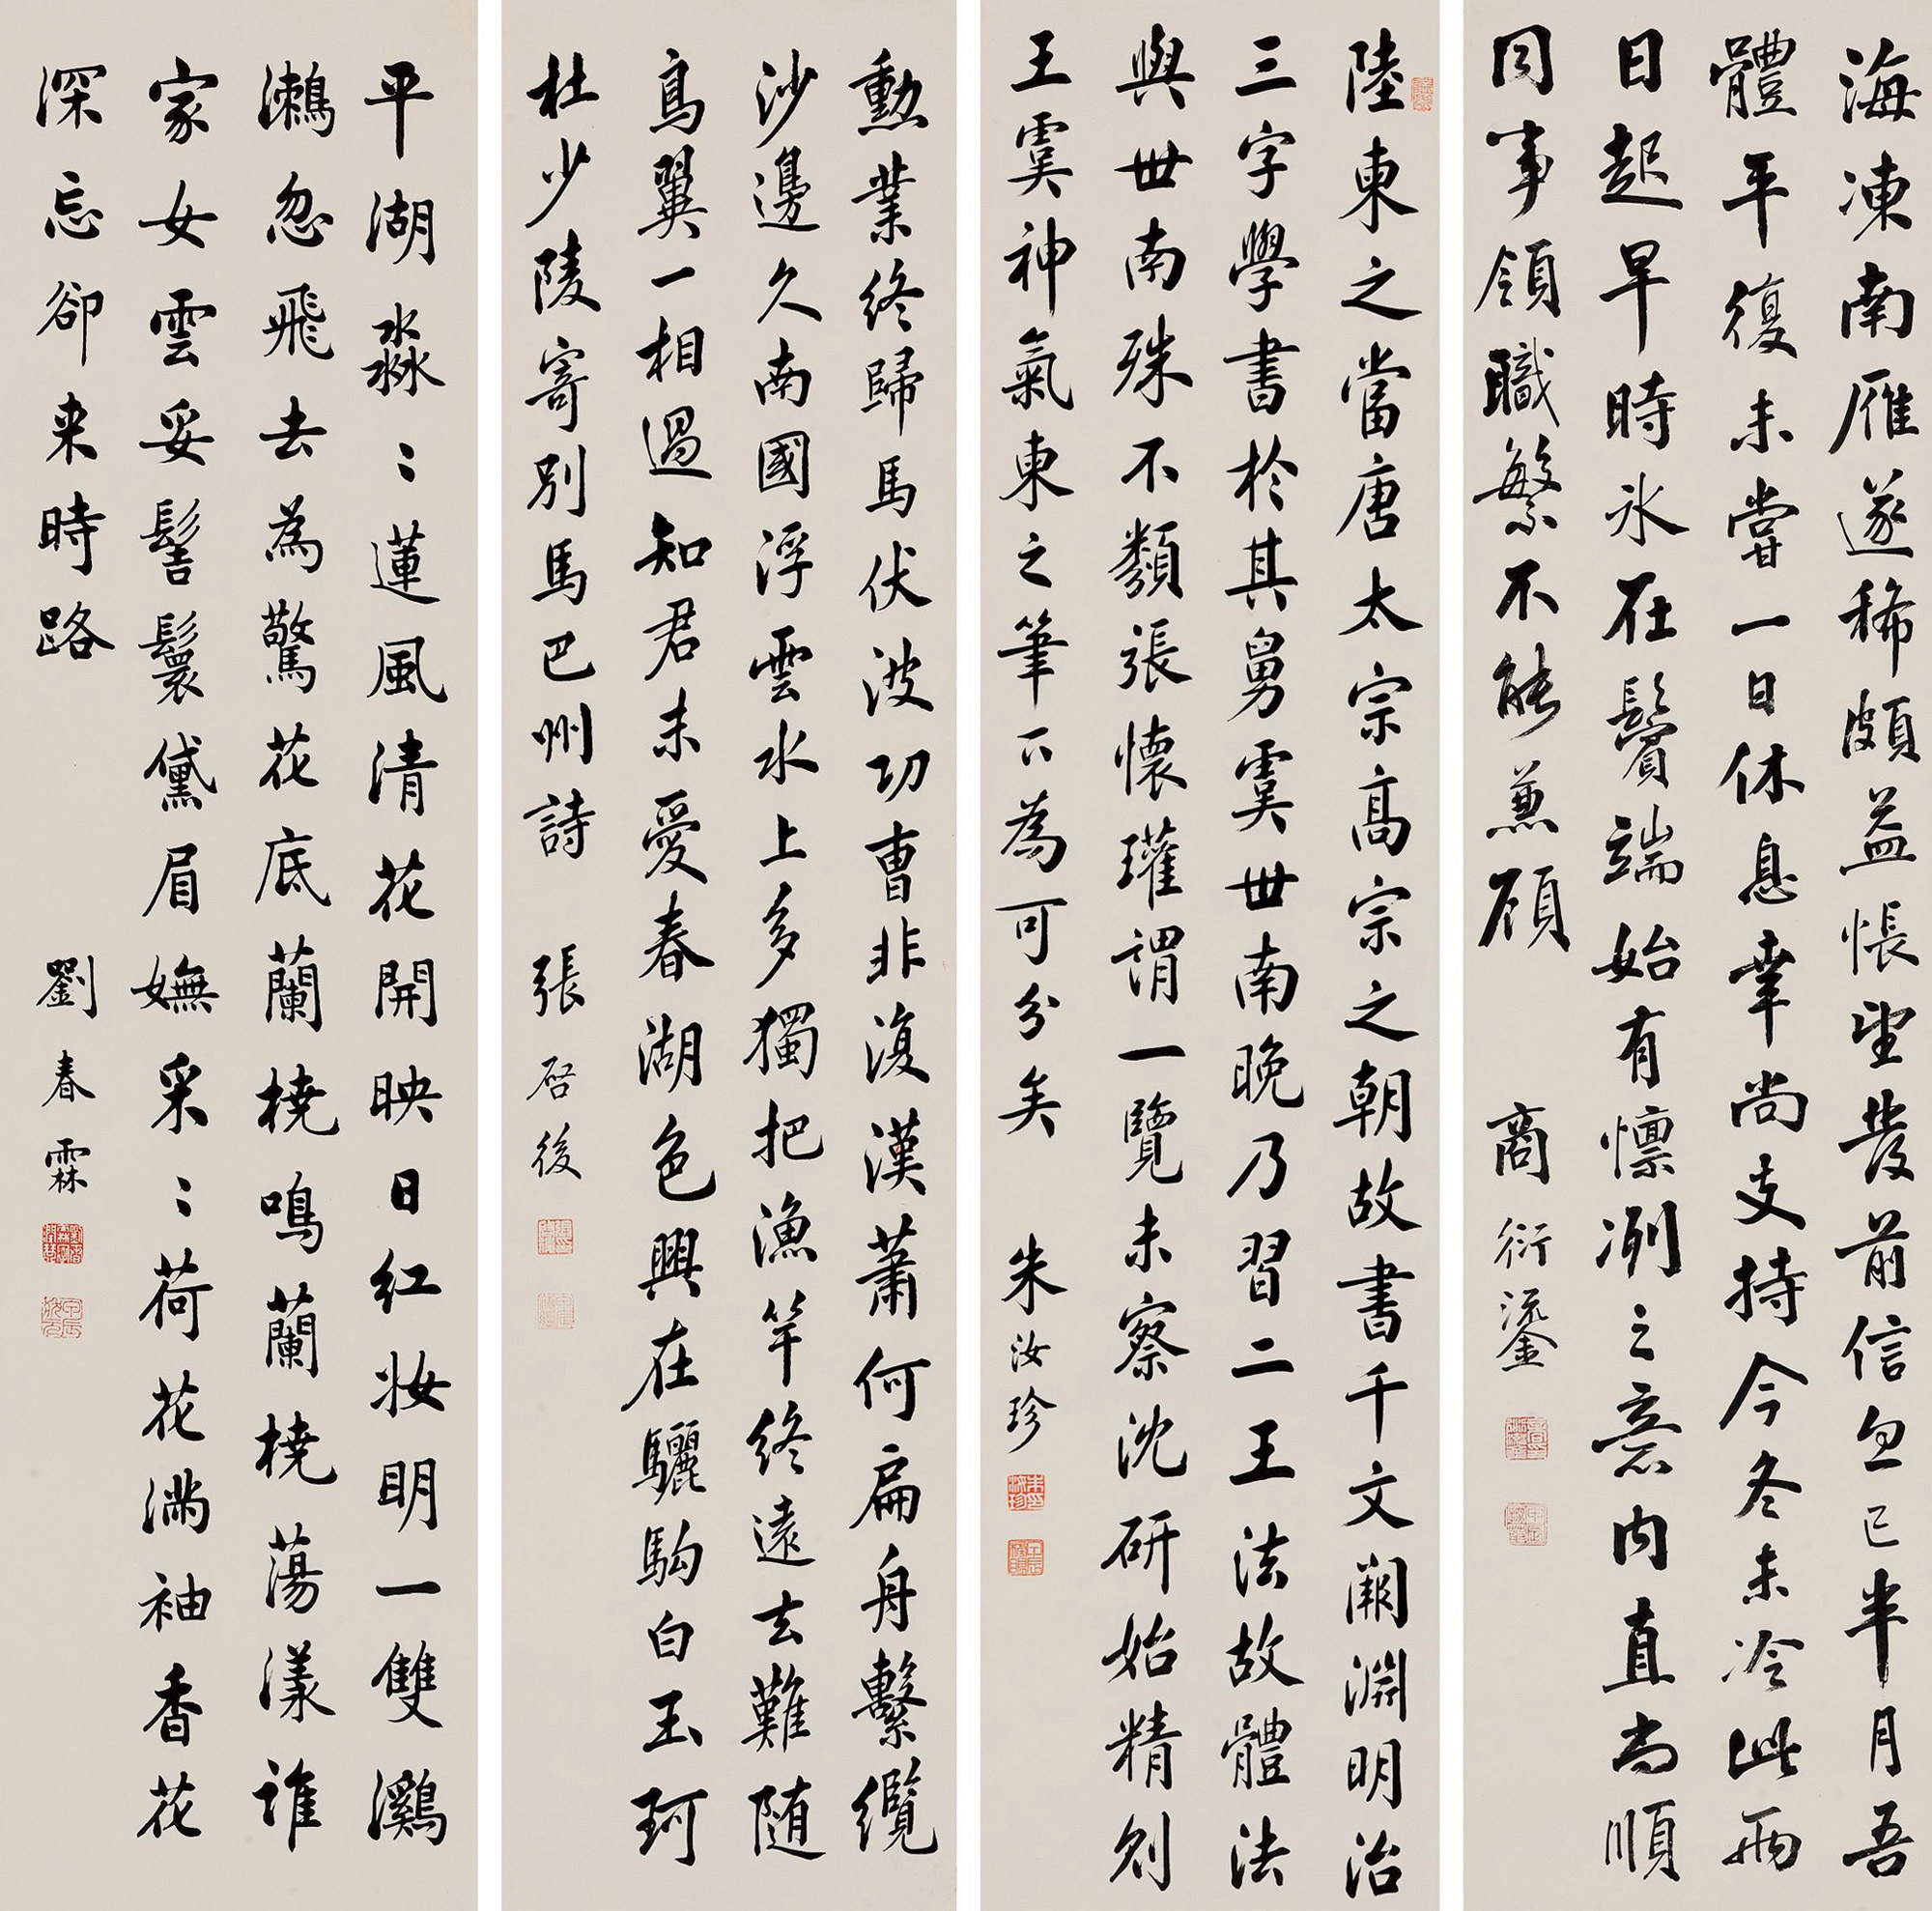 海凍南雁遂稀頗益悵望發前信勿已半月吾
體平復未嘗一日休息幸尚支持今冬未冷此兩
日起早時氷在鬢端始有懍冽之意內直尚順
同事領職繁不能兼顧
商衍鎏
陸東之當唐太宗高宗之朝故書千文闕淵明治
三字學書於其舅虞世南晚乃習二王法故體法
與世南殊不類張懷瓘謂一覽未察沈研始精創
王虞神氣東之筆下為可分矣
朱汝珍
勳業終歸馬伏波功曹非復漢蕭何扁舟繫纜
沙邊久南國浮雲水上多獨把漁竿終遠去難隨
鳥翼一相過知君未愛春湖色興在驪駒白玉珂
杜少陵寄別馬巴州詩
張啓後
平湖淼〻蓮風清花開映日紅妝明一雙鸂
鶒忽飛去為驚花底蘭橈鳴蘭橈蕩漾誰
家女雲妥髻鬟黛眉嫵采〻荷花滿袖香花
深忘卻来時路
劉春霖